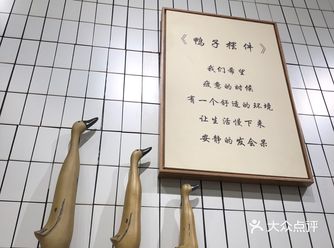 《鸭子摆件》
我们希望
疲惫的时候
有一个舒适的环境
让生活慢下来
安静的发会呆
大众点评